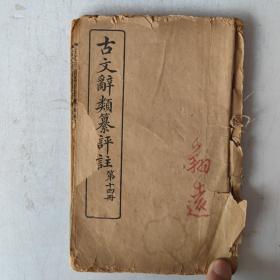 古文辭類纂評註
第十四冊